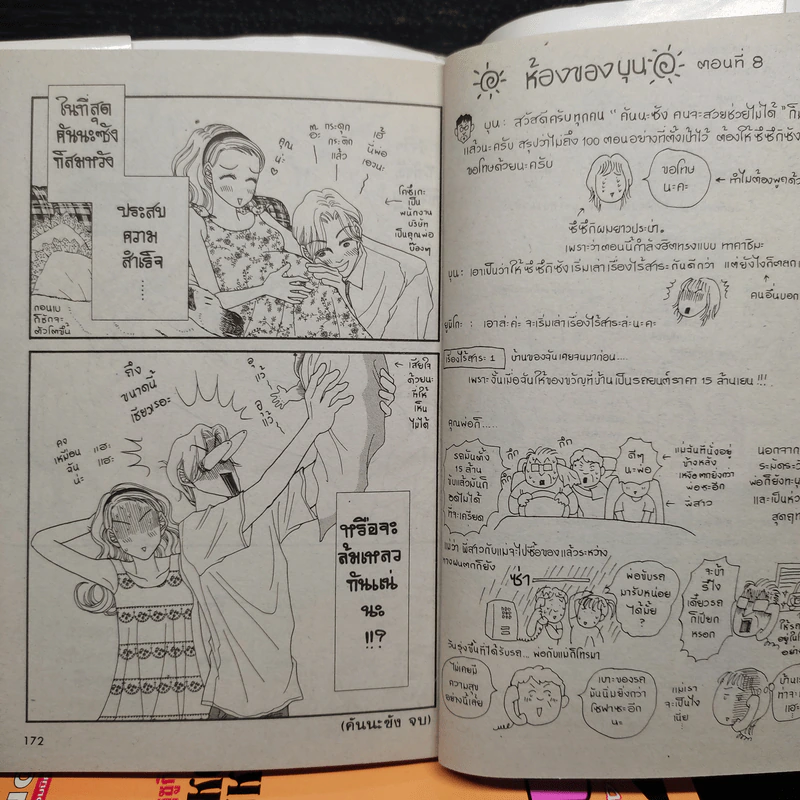 ในที่สุด
คันนะซัง
ก็สมหวัง
ประสบ
ความ
สำเร็จ
......
คุณ
น่ะ
กระดุก
กระดิก
แล้ว
โคซึเกะ
เป็น
พนักงาน
บริษัท
เป็นคุณพ่อ
ถึง
ขนาดนี้
เชียวเรอะ
คง
เหมือน
ฉัน
น่ะ
แฮะ
แฮะ
← เสียใจ
ด้วยนะ
ที่ให้
เห็น
ไม่ได้
หรือจะ
ล้มเหลว
กันแน่
นะ
!!?
(คันนะซัง จบ)
172
ห้องของบุน ตอนที่ 8
บุน : สวัสดีครับทุกคน "คันนะซัง คนจะสวยช่วยไม่ได้" ก็
แล้วนะครับ สรุปว่าไม่ถึง 100 ตอนอย่างที่ตั้งเป้าไว้ ต้องให้ ซึซึกิซัง
ขอโทษด้วยนะครับ
ขอโทษ
นะคะ
← ทำไมต้องพูดด้ว
ซึซึกิผมยาวประบ่า.
เพราะว่าตอนนี้กำลังฮิตทรงแบบ ทาคาชิมะ
บุน : เอาเป็นว่าให้ ซึซึกิซังเริ่มเล่าเรื่องไร้สาระกันดีกว่า แต่ยังไงก็ตลก
คนอื่นบอก
ยูมิโกะ : เอาล่ะค่ะ จะเริ่มเล่าเรื่องไร้สาระล่ะนะคะ
เรื่องไร้สาระ 1 บ้านของฉันเคยจนมาก่อน....
เพราะงั้นเมื่อฉันให้ของขวัญที่บ้านเป็นรถยนต์ราคา 15 ล้านเยน !!!
คุณพ่อก็.....
รถมันตั้ง
15 ล้าน
ขับแล้วมันก็
อดไม่ได้
ที่จะเครียด
กึก
กึก
ดีๆ
นะพ่อ
← แม่ฉันที่นั่งอยู่
ข้างหลัง
เหงื่อตกยิ่งกว่า
พ่อซะอีก
← พี่สาว
นอกจาก
พ่อก็ยัง
และเป็นห่ว
แม่ว่า พี่สาวกับแม่จะไปซื้อของแล้วระหว่าง
ทางฝนตกก็ยัง
ซ่า
พ่อขับรถ
มารับหน่อย
ได้มั้ย
?
จะบ้า
รึไง
เดี๋ยวรถ
ก็เปียก
หรอก
วันรุ่งขึ้นที่ได้รับรถ... พ่อกับแม่ก็โทรมา
ไม่เคยมี
ความสุข
อย่างนี้เลย
เบาะของรถ
มันนิ่มยิ่งกว่า
โซฟาซะอีก
นะ
แม่เรา
จะเป็นไง
เนี่ย